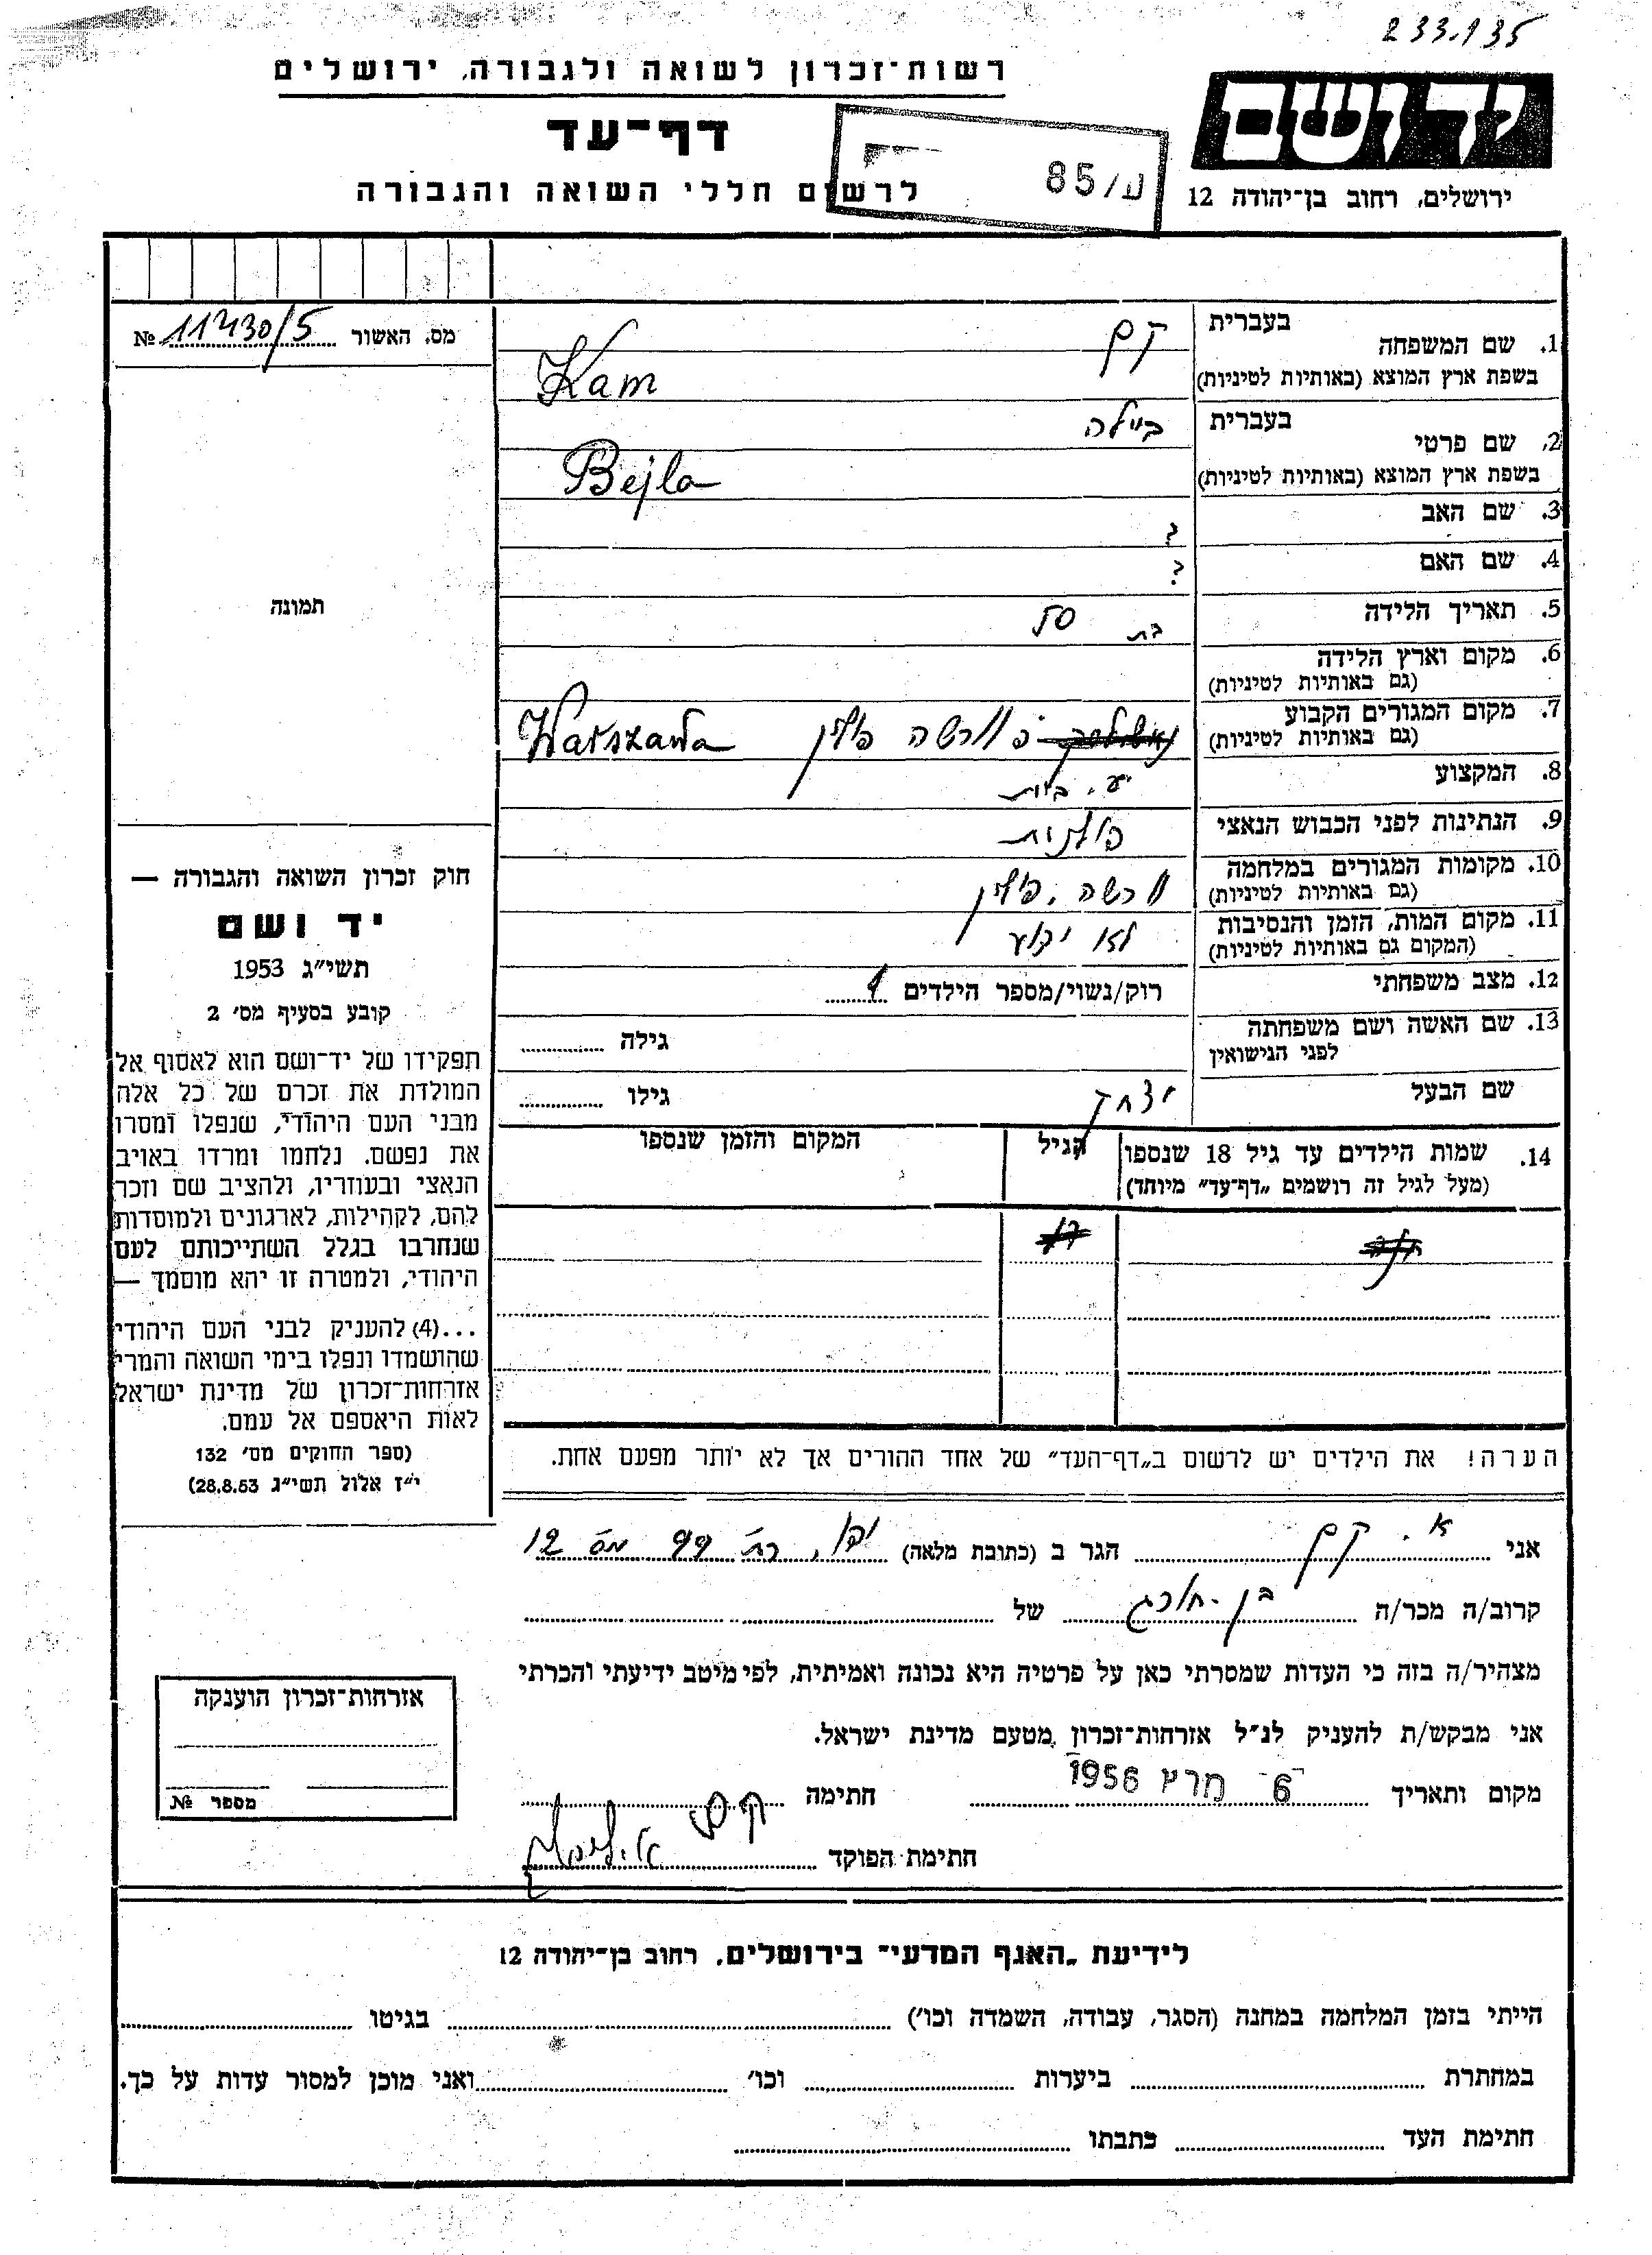 233.135
רשות־זכרון לשואה ולגבורה, ירושלים
יד ושם
דף־עד
לרשום חללי השואה והגבורה
ע/85
ירושלים, רחוב בן־יהודה 12
מס. האשור 11430/5 №
1. שם המשפחה
בעברית
קם
בשפת ארץ המוצא (באותיות לטיניות)
Kam
2. שם פרטי
בעברית
ביילה
בשפת ארץ המוצא (באותיות לטיניות)
Bejla
3. שם האב
?
4. שם האם
?
5. תאריך הלידה
בת 50
6. מקום וארץ הלידה
(גם באותיות לטיניות)
7. מקום המגורים הקבוע
(גם באותיות לטיניות)
וורשה פולין Warszawa
8. המקצוע
עק. בית
9. הנתינות לפני הכבוש הנאצי
פולנית
10. מקומות המגורים במלחמה
(גם באותיות לטיניות)
ורשה, פולין
11. מקום המות, הזמן והנסיבות
(המקום גם באותיות לטיניות)
לא ידוע
12. מצב משפחתי
רוק/נשוי/מספר הילדים 1
13. שם האשה ושם משפחתה
לפני הנישואין
גילה
שם הבעל
יצחק
גילו
14. שמות הילדים עד גיל 18 שנספו
(מעל לגיל זה רושמים "דף־עד" מיוחד)
הגיל
המקום והזמן שנספו
תמונה
חוק זכרון השואה והגבורה —
יד ושם
תשי"ג 1953
קובע בסעיף מס׳ 2
תפקידו של יד־ושם הוא לאסוף אל
המולדת את זכרם של כל אלה
מבני העם היהודי, שנפלו ומסרו
את נפשם, נלחמו ומרדו באויב
הנאצי ובעוזריו, ולהציב שם וזכר
להם, לקהילות, לארגונים ולמוסדות
שנחרבו בגלל השתייכותם לעם
היהודי, ולמטרה זו יהא מוסמך —
...(4) להעניק לבני העם היהודי
שהושמדו ונפלו בימי השואה והמרי
אזרחות־זכרון של מדינת ישראל
לאות היאספם אל עמם.
(ספר החוקים מס׳ 132
י"ז אלול תשי"ג 28.8.53)
הערה! את הילדים יש לרשום ב"דף־העד" של אחד ההורים אך לא יותר מפעם אחת.
אני א. קם הגר ב (כתובת מלאה) יפו, רח 99 מס 12
קרוב/ה מכר/ה בן־חורג של
מצהיר/ה בזה כי העדות שמסרתי כאן על פרטיה היא נכונה ואמיתית, לפי מיטב ידיעתי והכרתי
אני מבקש/ת להעניק לנ"ל אזרחות־זכרון מטעם מדינת ישראל.
מקום ותאריך 6 - מרץ 1956 חתימה קם
חתימת הפוקד
אזרחות־זכרון הוענקה
מספר №
לידיעת "האגף המדעי" בירושלים, רחוב בן־יהודה 12
הייתי בזמן המלחמה במחנה (הסגר, עבודה, השמדה וכו׳) בגיטו
במחתרת ביערות וכו׳ ואני מוכן למסור עדות על כך.
חתימת העד כתבתו